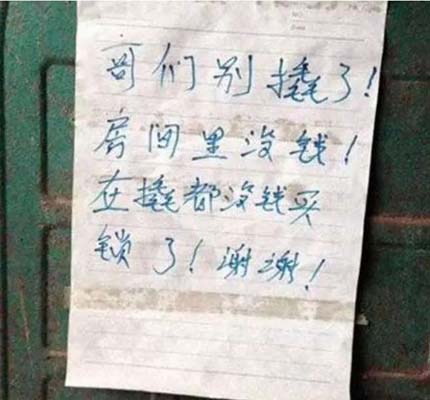 哥们别撬了!
房间里没钱!
在撬都没钱买
锁了!谢谢!